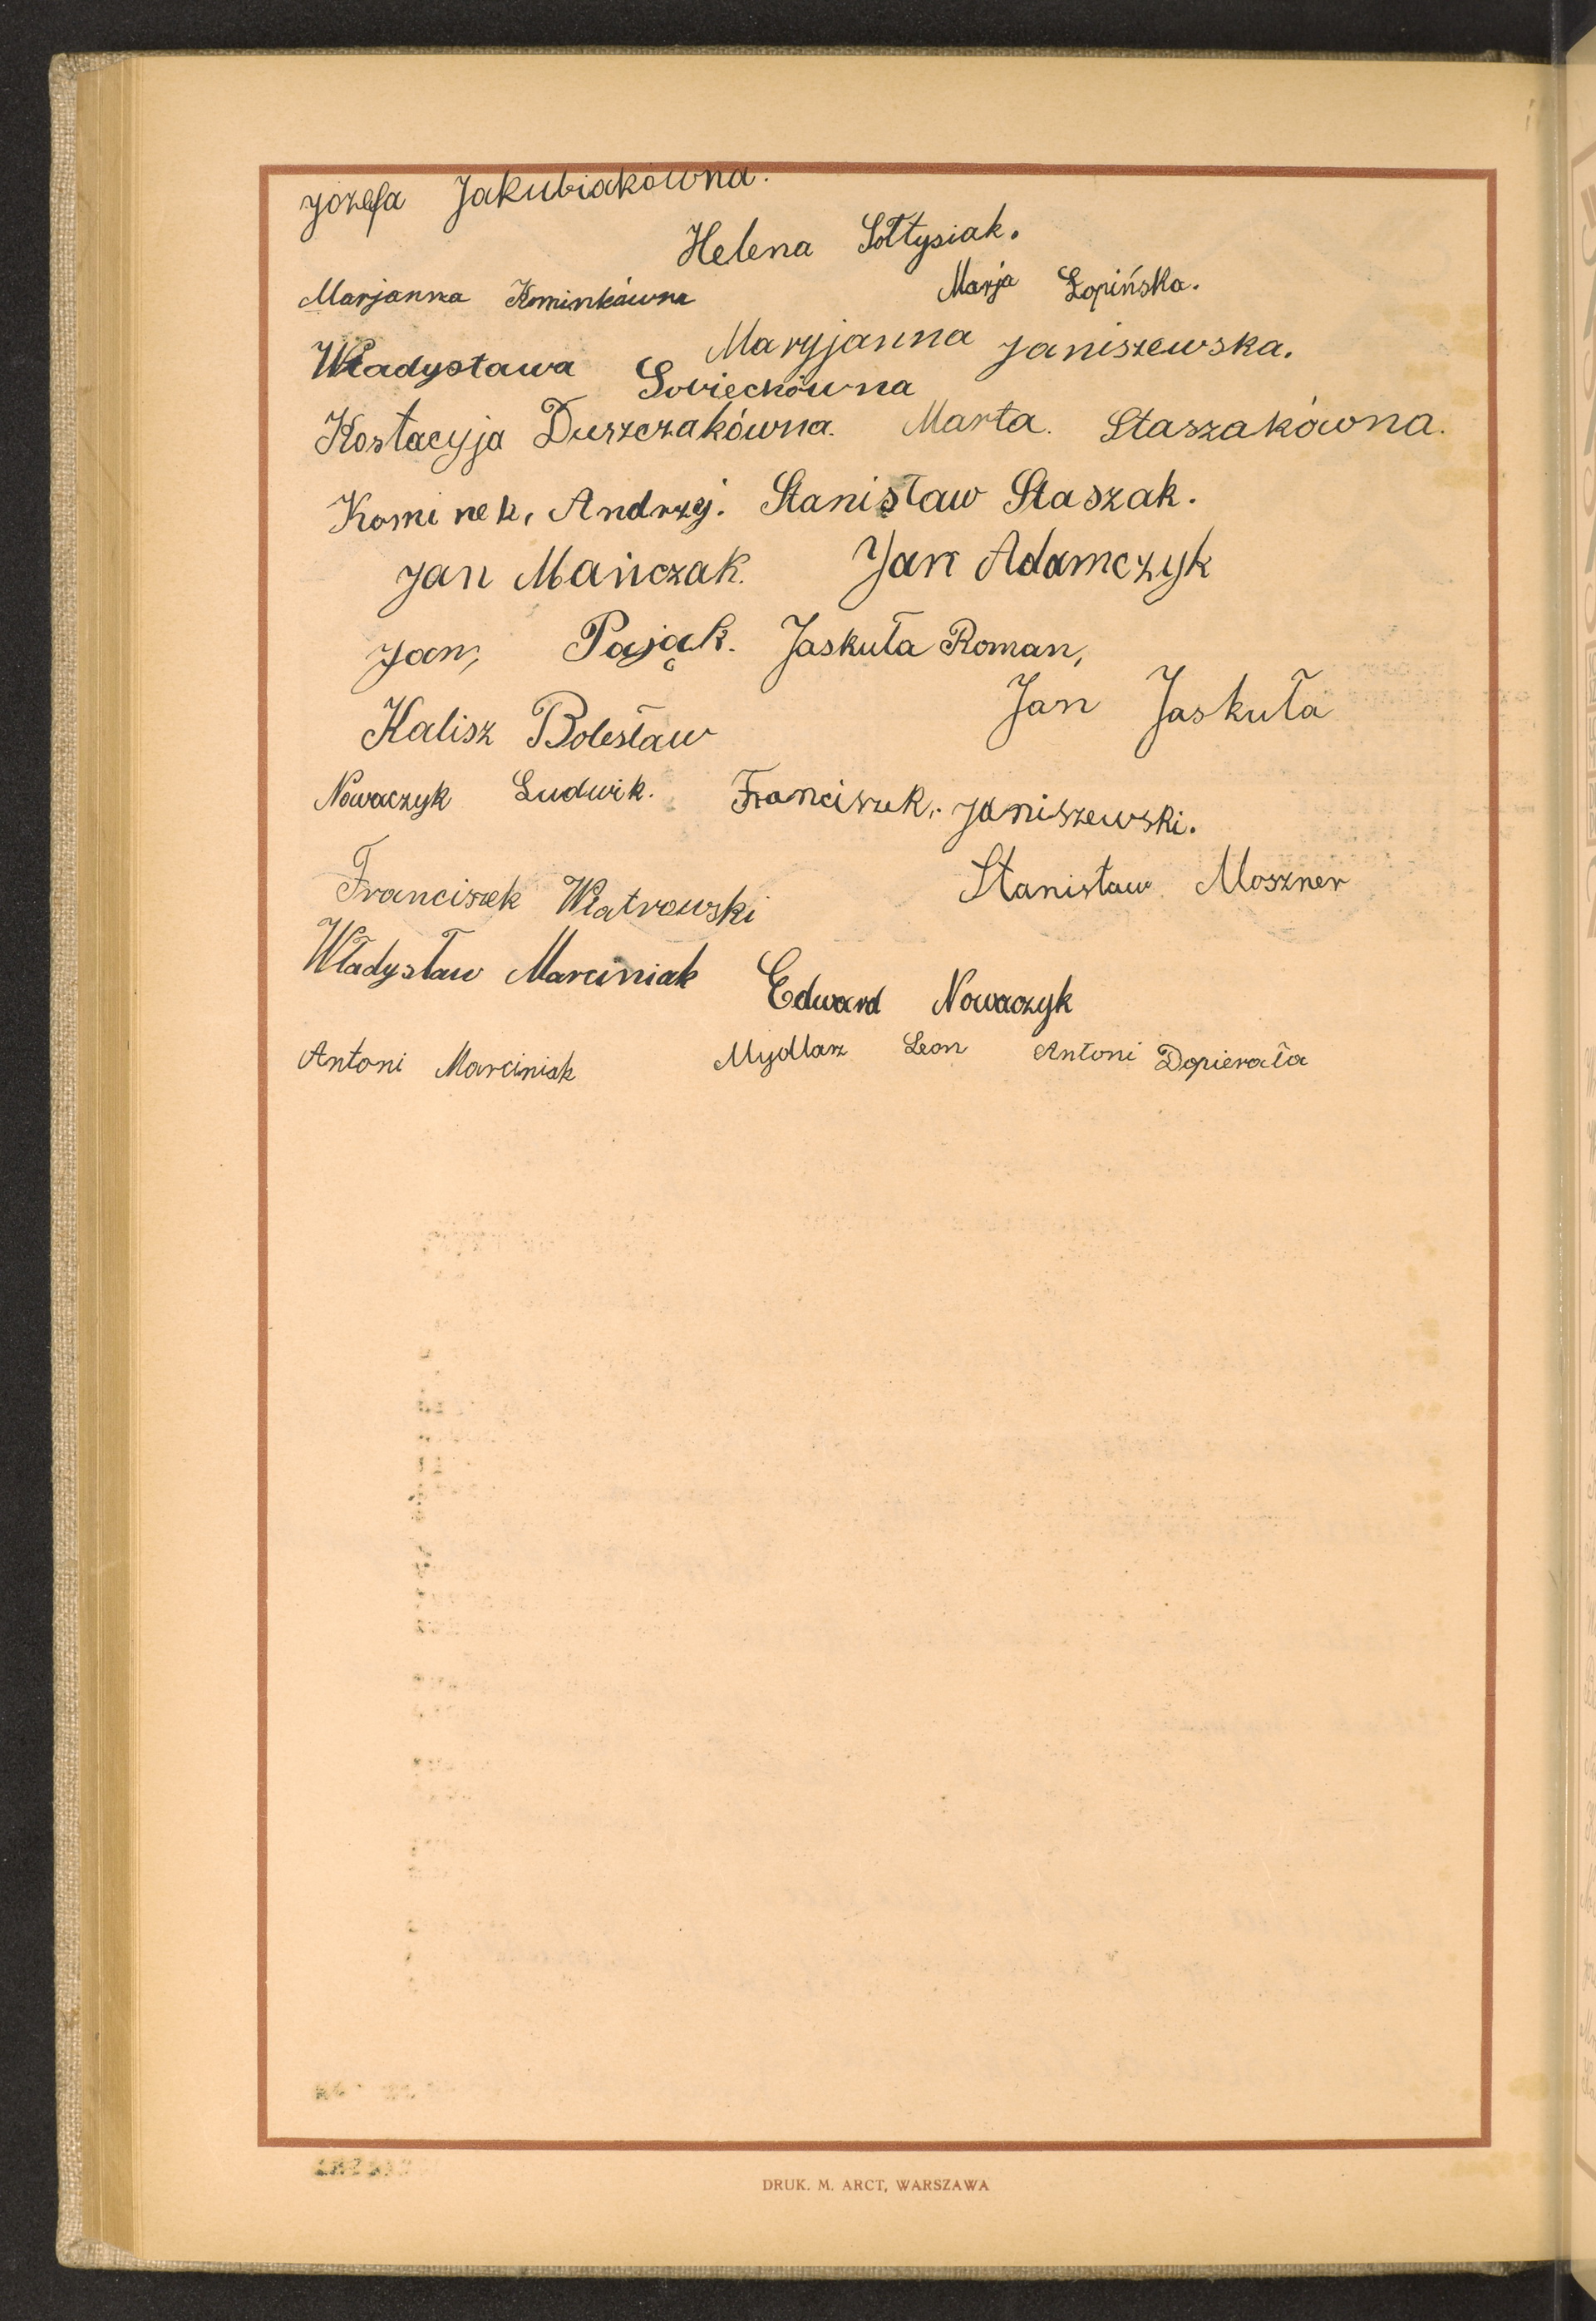 Józefa Jakubiakówna.
Helena Sołtysiak.
Marjanna Kominkówna Marja Łopińska.
Maryjanna Janiszewska.
Władysława Sobieckówna
Kostacyja Duszczakówna. Marta. Staszakówna.
Kominek, Andrzej. Stanisław Staszak.
Jan Mańczak. Jan Adamczyk
Jan, Pająk. Jaskuła Roman,
Kalisz Bolesław Jan Jaskuła
Nowaczyk Ludwik. Franciszek. Janiszewski.
Franciszek Wiatrowski Stanisław Moszner
Władysław Marciniak Edward Nowaczyk
Antoni Marciniak Mydlarz Leon Antoni Dopierała
DRUK. M. ARCT, WARSZAWA